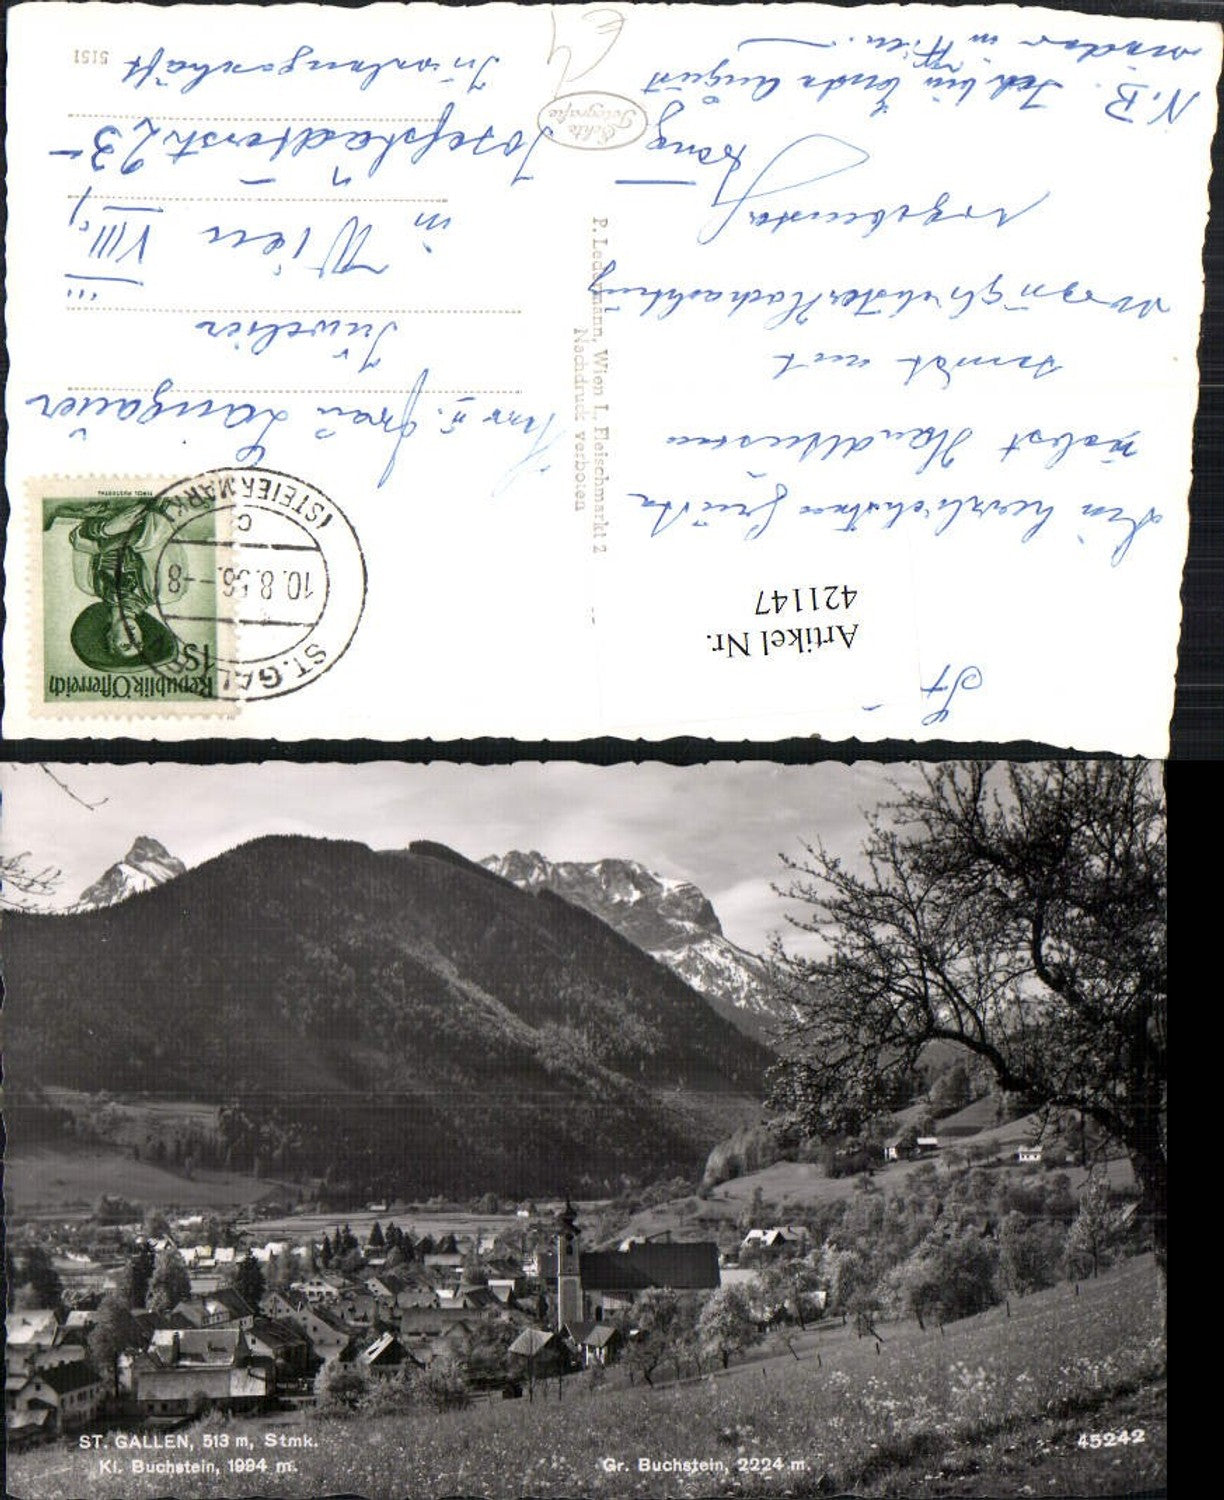 die herzlichsten Grüße
nebst Handküssen
samt mit
vorzüglichster Hochachtung
ergebenster
N.B. Ich bin Ende August
wieder in Wien.
Echte
Fotografie
P. Ledermann, Wien I., Fleischmarkt 2
Nachdruck verboten
5151
Herr u. Frau Langauer
Juwelier
in Wien VIII,
Josefstädterstr. 23
Artikel Nr.
421147
Republik Österreich
1S
TIROL PUSTERTAL
ST. GALLEN
10.8.56.-8
c
(STEIERMARK)
ST. GALLEN, 513 m, Stmk.
Kl. Buchstein, 1994 m.
Gr. Buchstein, 2224 m.
45242